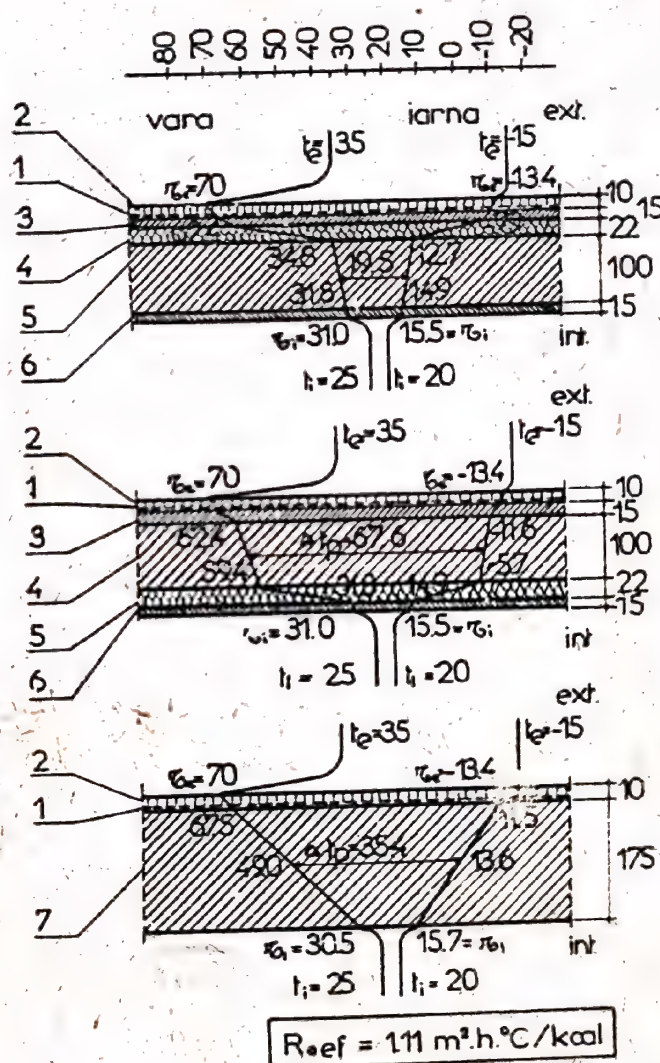 80 70 60 50 40 30 20 10 0 -10 -20
vara iarna ext.
2
1
3
4
5
6
te=35 te=-15
τse=70 τse=-13.4
10
15
22
100
15
34.8 19.5 12.7
31.8 14.9
τsi=31.0 15.5=τsi int.
ti=25 ti=20
ext.
2
1
3
4
5
6
te=35 te=-15
τse=70 τse=-13.4
10
15
100
22
15
62.4 Δtp=67.6 -11.6
59.4 -5.7
31.0 14.9
τsi=31.0 15.5=τsi int
ti=25 ti=20
ext.
2
1
7
te=35 te=-15
τse=70 τse=-13.4
10
175
67.5
49.0 Δtp=35.4 13.6
τsi=30.5 15.7=τsi int
ti=25 ti=20
R₀ef = 1.11 m².h.°C/kcal